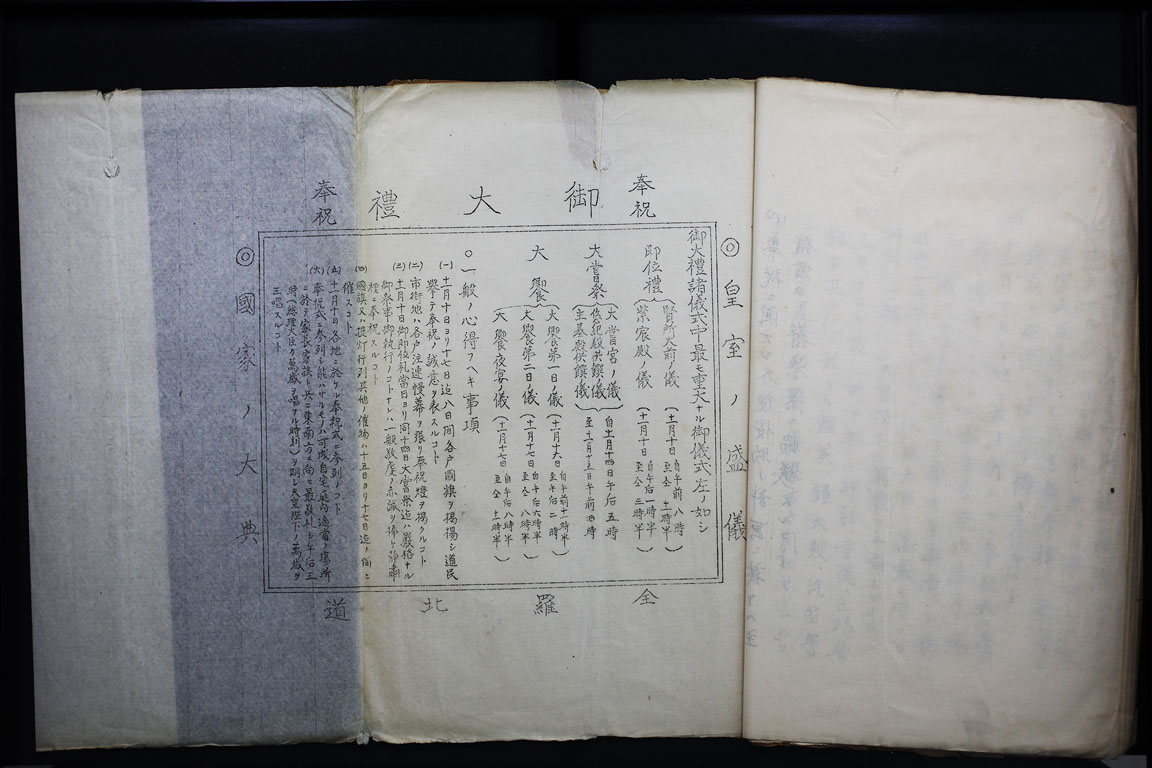 奉祝
御大禮
奉祝
◎皇室ノ盛儀
御大禮諸儀式中最モ重大ナル御儀式左ノ如シ
即位禮
賢所大前ノ儀(十一月十日自午前八時至仝十一時半)
紫宸殿ノ儀(十一月十日自午后一時半至仝三時半)
大嘗祭
大嘗宮ノ儀
悠紀殿供饌儀
主基殿供饌儀
自十一月十四日午后五時
至十一月十五日午前四時
大饗
大饗第一日ノ儀(十一月十六日自午前十一時半至午后二時)
大饗第二日ノ儀(十一月十七日自午后六時半至仝八時半)
大饗夜宴ノ儀(十一月十七日自午后八時半至仝十一時半)
○一般ノ心得フヘキ事項
(一)十一月十日ヨリ十七日迄八日間各戸國旗ヲ掲揚シ道民
擧テ奉祝ノ誠意ヲ表スルコト
(二)市街地ハ各戸注連幔幕ヲ張リ奉祝燈ヲ掲クルコト
(三)十一月十日御即位礼當日ヨリ同十四日大嘗祭迄ハ嚴格ナル
御祭事御執行ノコトナレハ一般敬虔ノ赤誠ヲ捧ケ靜肅
裡ニ奉祝スルコト
(四)國旗又ハ提灯行列其他ノ催物ハ十五日ヨリ十七日迄ノ間ニ
催スコト
(五)十一月十日各地ニ於ケル奉祝式ニ参列ノコト
(六)奉祝式ニ参列シ能ハサルモノハ可成自宅ノ庭内適當ノ場所
ニ於テ家長家族ト共ニ東南方ニ向ヒ最敬礼シ午后三
時(總理大臣カ萬歳ヲ唱フル時刻)ヲ期シ天皇陛下ノ萬歳ヲ
三唱スルコト
◎國家ノ大典
全羅北道